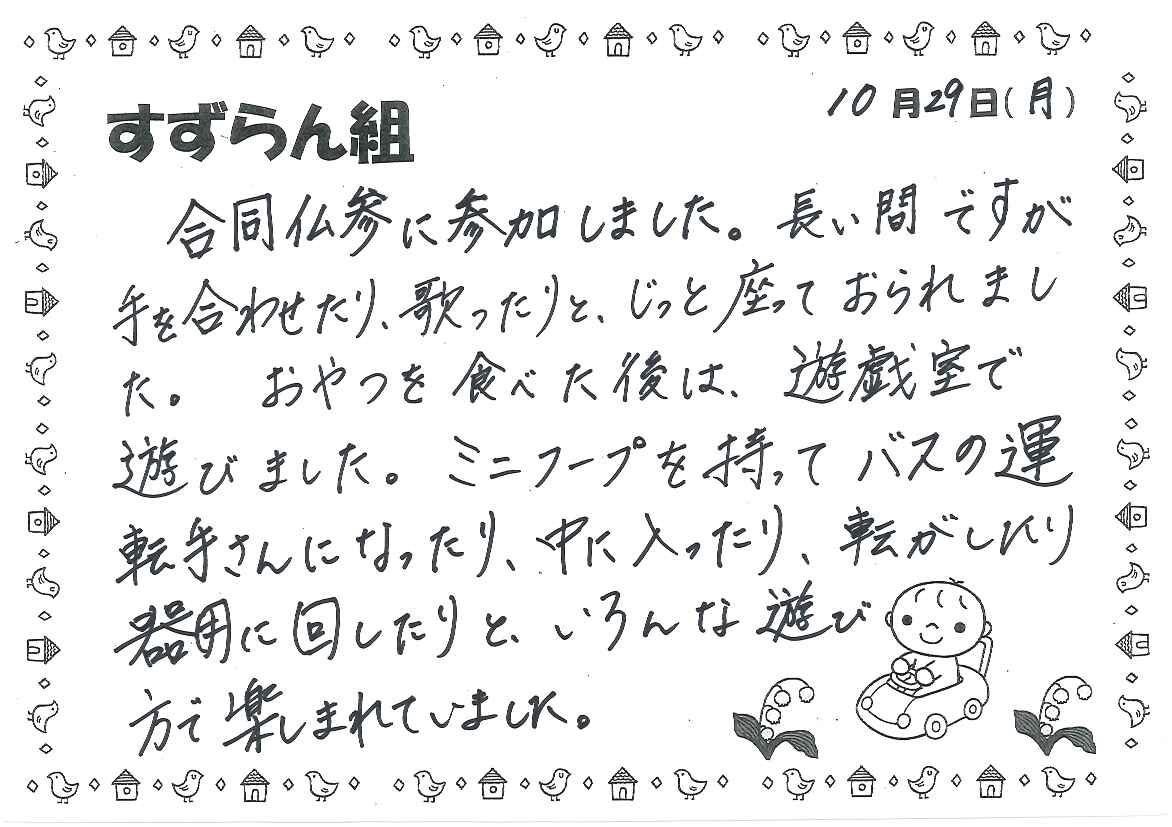 すずらん組
10月29日(月)
合同仏参に参加しました。長い間ですが
手を合わせたり、歌ったりと、じっと座っておられまし
た。 おやつを食べた後は、遊戯室で
遊びました。ミニフープを持ってバスの運
転手さんになったり、中に入ったり、転がしたり
器用に回したりと、いろんな遊び
方で楽しまれていました。